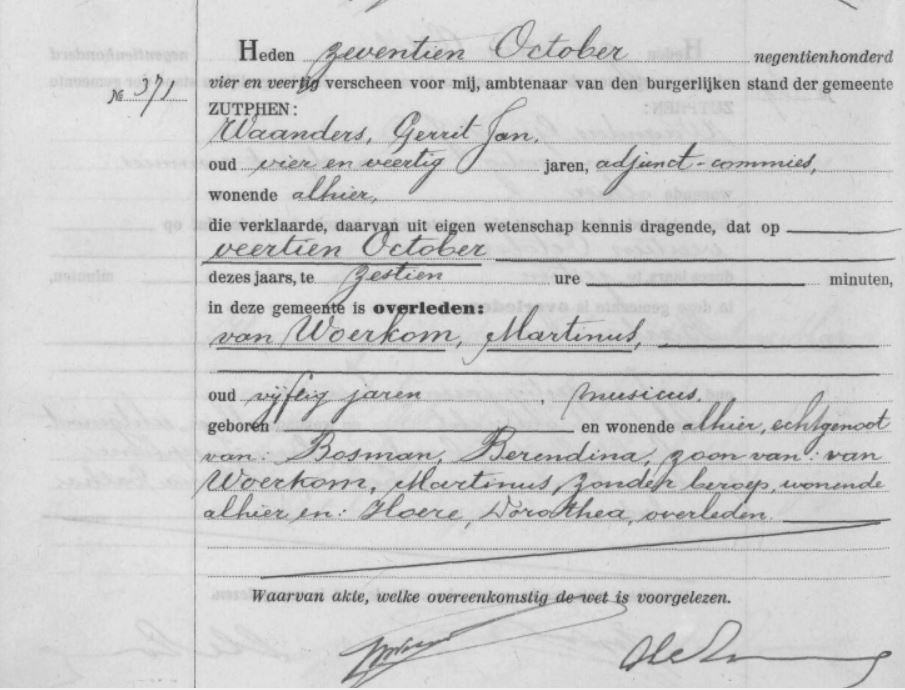 Heden zeventien October negentienhonderd
№ 371
vier en veertig verscheen voor mij, ambtenaar van den burgerlijken stand der gemeente
ZUTPHEN:
Waanders, Gerrit Jan,
oud vier en veertig jaren, adjunct-commies,
wonende alhier,
die verklaarde, daarvan uit eigen wetenschap kennis dragende, dat op
veertien October
dezes jaars, te zestien ure minuten,
in deze gemeente is overleden:
van Woerkom, Martinus,
oud vijftig jaren, musicus,
geboren en wonende alhier, echtgenoot
van: Bosman, Berendina, zoon van: van
Woerkom, Martinus, zonder beroep, wonende
alhier en: Hoere, Dorothea, overleden.
Waarvan akte, welke overeenkomstig de wet is voorgelezen.